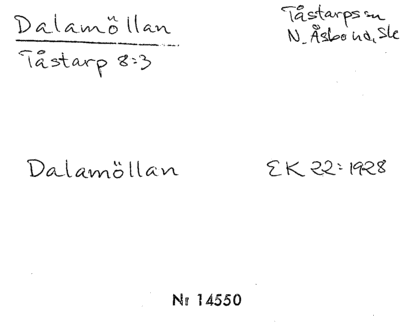 Dalamöllan
Tåstarp 8:3
Tåstarps sn
N. Åsbo hd, Skå
Dalamöllan
EK 22:1928
Nr 14550